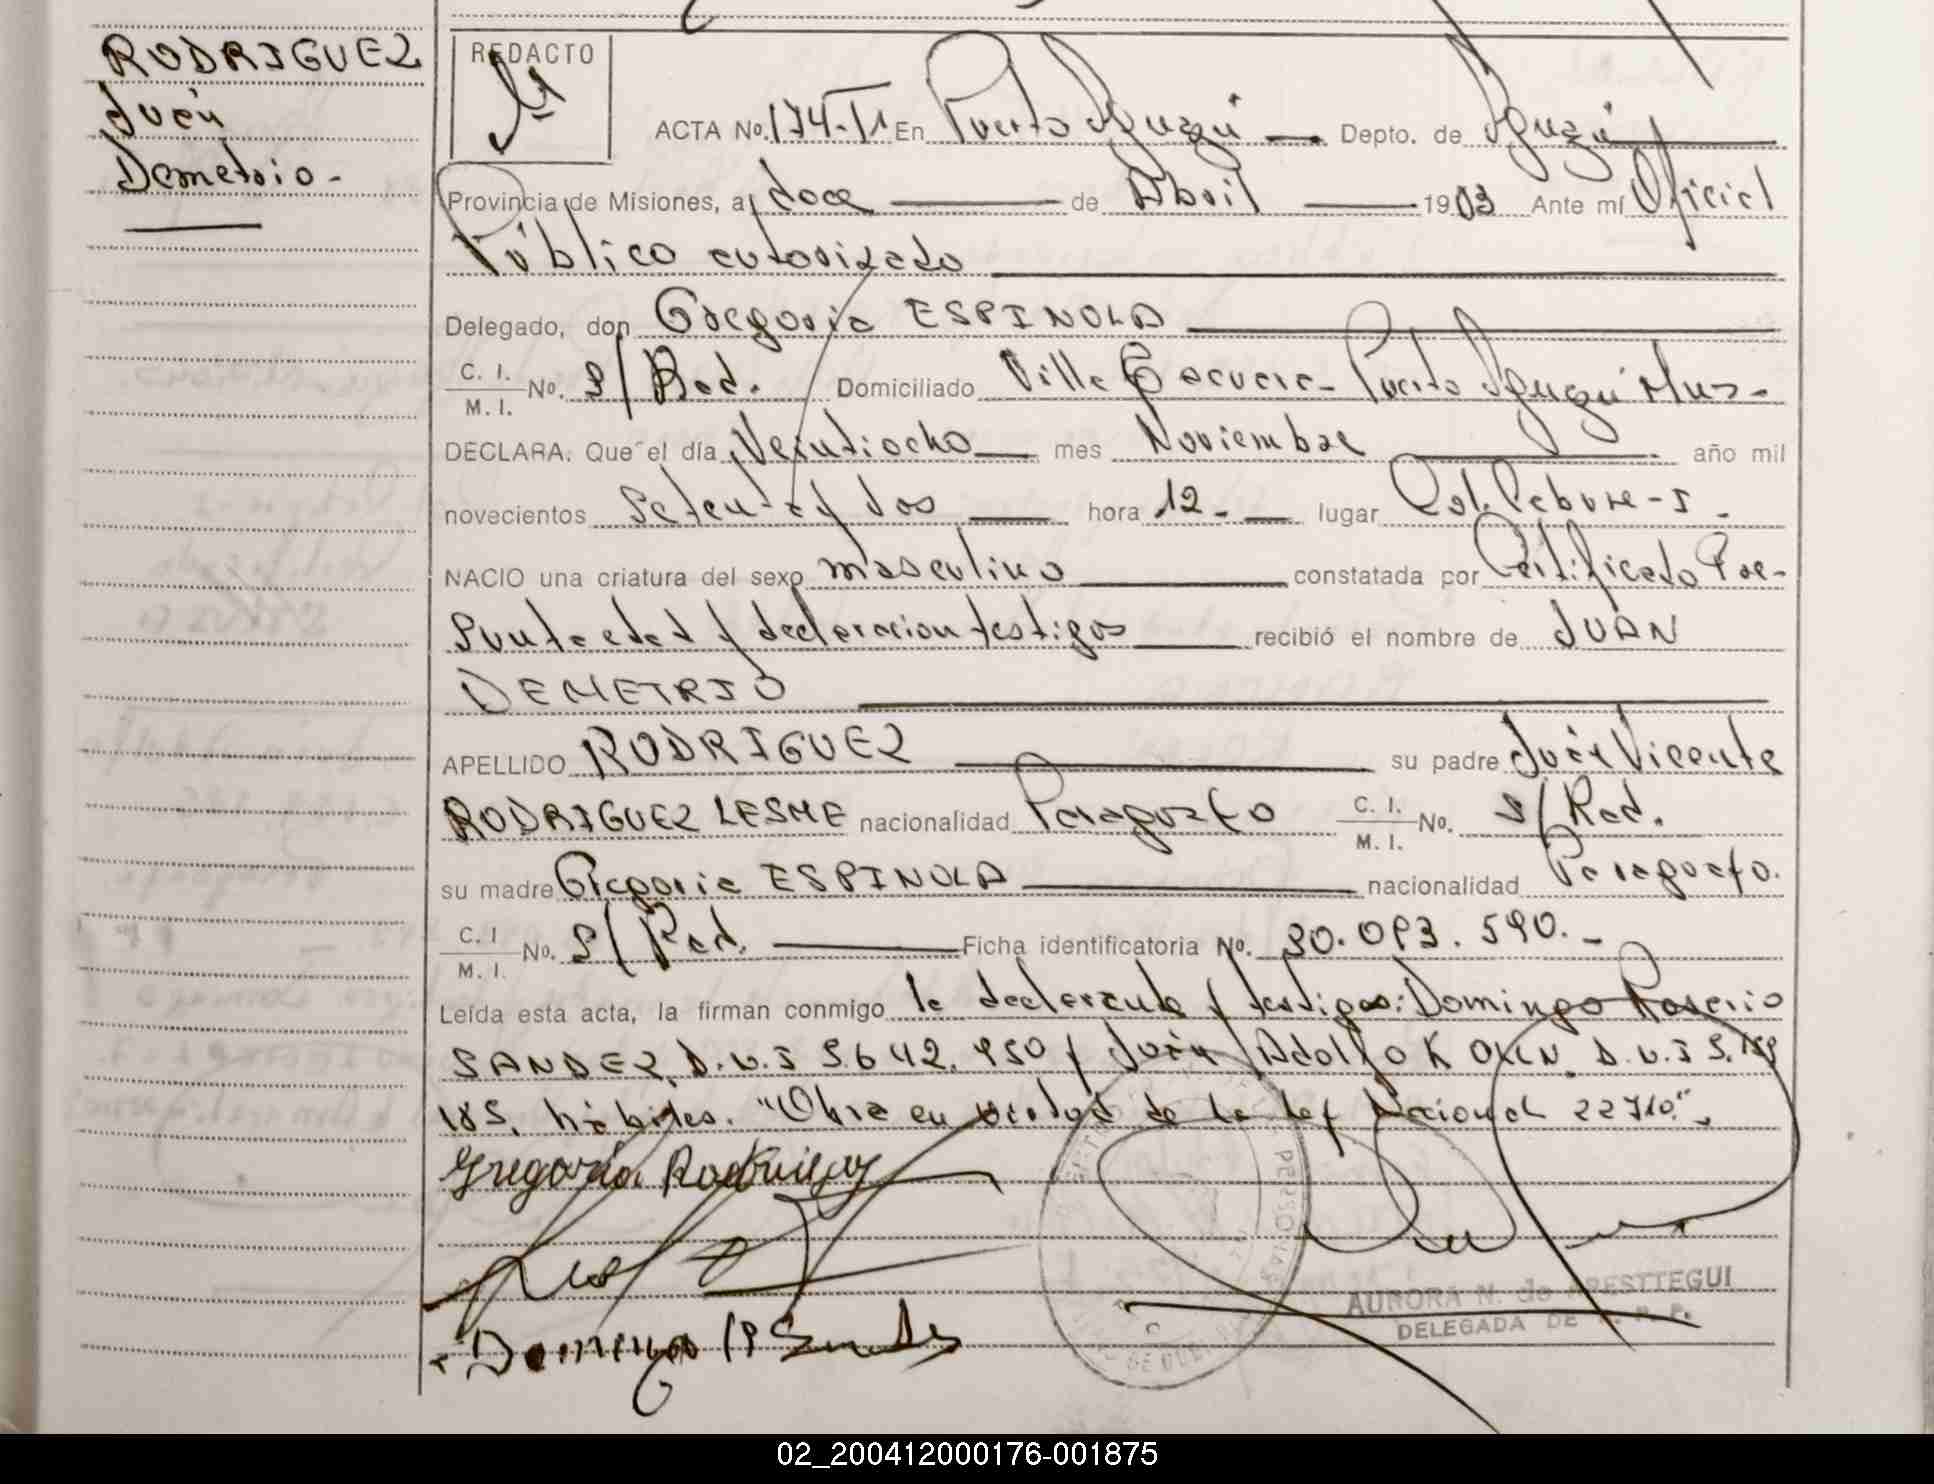 RODRIGUEZ
Juan
Demetrio-
REDACTO
ACTA No. 174-T1 En Puerto Iguazú Depto. de Iguazú
Provincia de Misiones, a doce de Abril 1983 Ante mí Oficial
Público autorizado
Delegado, don Gregoria ESPINOLA
C. I. M. I. No. S/Rad. Domiciliado Villa Puerto Iguazú
DECLARA: Que el día Veintiocho mes Noviembre año mil
novecientos Setenta y dos hora 12.- lugar
NACIO una criatura del sexo masculino constatada por Certificado Pre-
sunta edad y declaracion testigos recibió el nombre de JUAN
DEMETRIO
APELLIDO RODRIGUEZ su padre Juan Vicente
RODRIGUEZ LESME nacionalidad Paraguayo C. I. M. I. No. S/Rad.
su madre Gregoria ESPINOLA nacionalidad Paraguayo.
C. I M. I. No. S/Rad. Ficha identificatoria No. 30.093.590.-
Leída esta acta, la firman conmigo la declarante y testigos: Domingo Rosario
SANDEZ, D.N.I 5.642.950 y Juan Adolfo D.N.I
185, hábiles. "Obra en virtud de la ley Nacional 22710".-
Gregoria Rodriguez
AURORA N. de ARESTTEGUI
DELEGADA DE R. P.
02_200412000176-001875